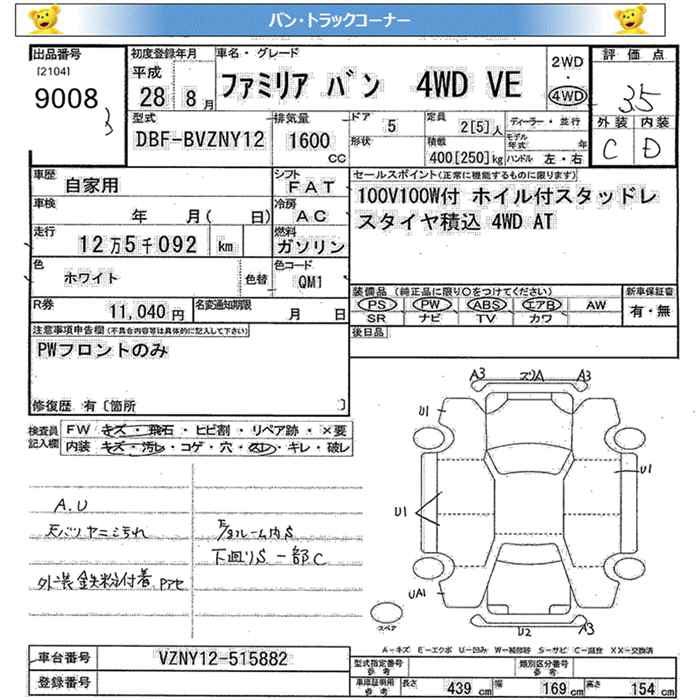 バン・トラックコーナー
出品番号
[2104]
9008
3
初度登録年月
平成
28 8月
車名・グレード
ファミリア バン 4WD VE
2WD
・
4WD
評価点
3.5
外装 内装
C D
型式
DBF-BVZNY12
排気量
1600
CC
ドア
5
定員
2[5]人
ディーラー・並行
形状
積載
400[250]kg
モデル年式 年
ハンドル 左・右
車歴
自家用
シフト
FAT
車検
年 月( 日)
冷房
AC
走行
12万5千092 km
燃料
ガソリン
色
ホワイト
色替
色コード
QM1
R券
11,040円
名変通知期限
月 日
セールスポイント(正常に機能するものに限ります)
100V100W付 ホイル付スタッドレ
スタイヤ積込 4WD AT
装備品 (純正品に限り○をつけてください)
新車保証書
PS PW ABS エアB AW
有・無
SR ナビ TV カワ
後日品
注意事項申告欄(不具合内容等は具体的に記入して下さい)
PWフロントのみ
修復歴 有〔箇所 〕
検査員
記入欄
FW キズ・飛石・ヒビ割・リペア跡・×要
内装 キズ・汚レ・コゲ・穴・スレ・キレ・破レ
A.U
天バツヤニ汚れ
外装鉄粉付着
ルーム内S
下廻りS 一部C
A3
ズリA
A3
U1
U1
U1
UA1
U2
A3
スペア
A-キズ E-エクボ U-凹み W-補修跡 S-サビ C-腐食 XX-交換済
車台番号
VZNY12-515882
登録番号
型式指定番号
参考
類別区分番号
参考
車庫証明用
参考
長さ 439cm 幅 169cm 高さ 154cm